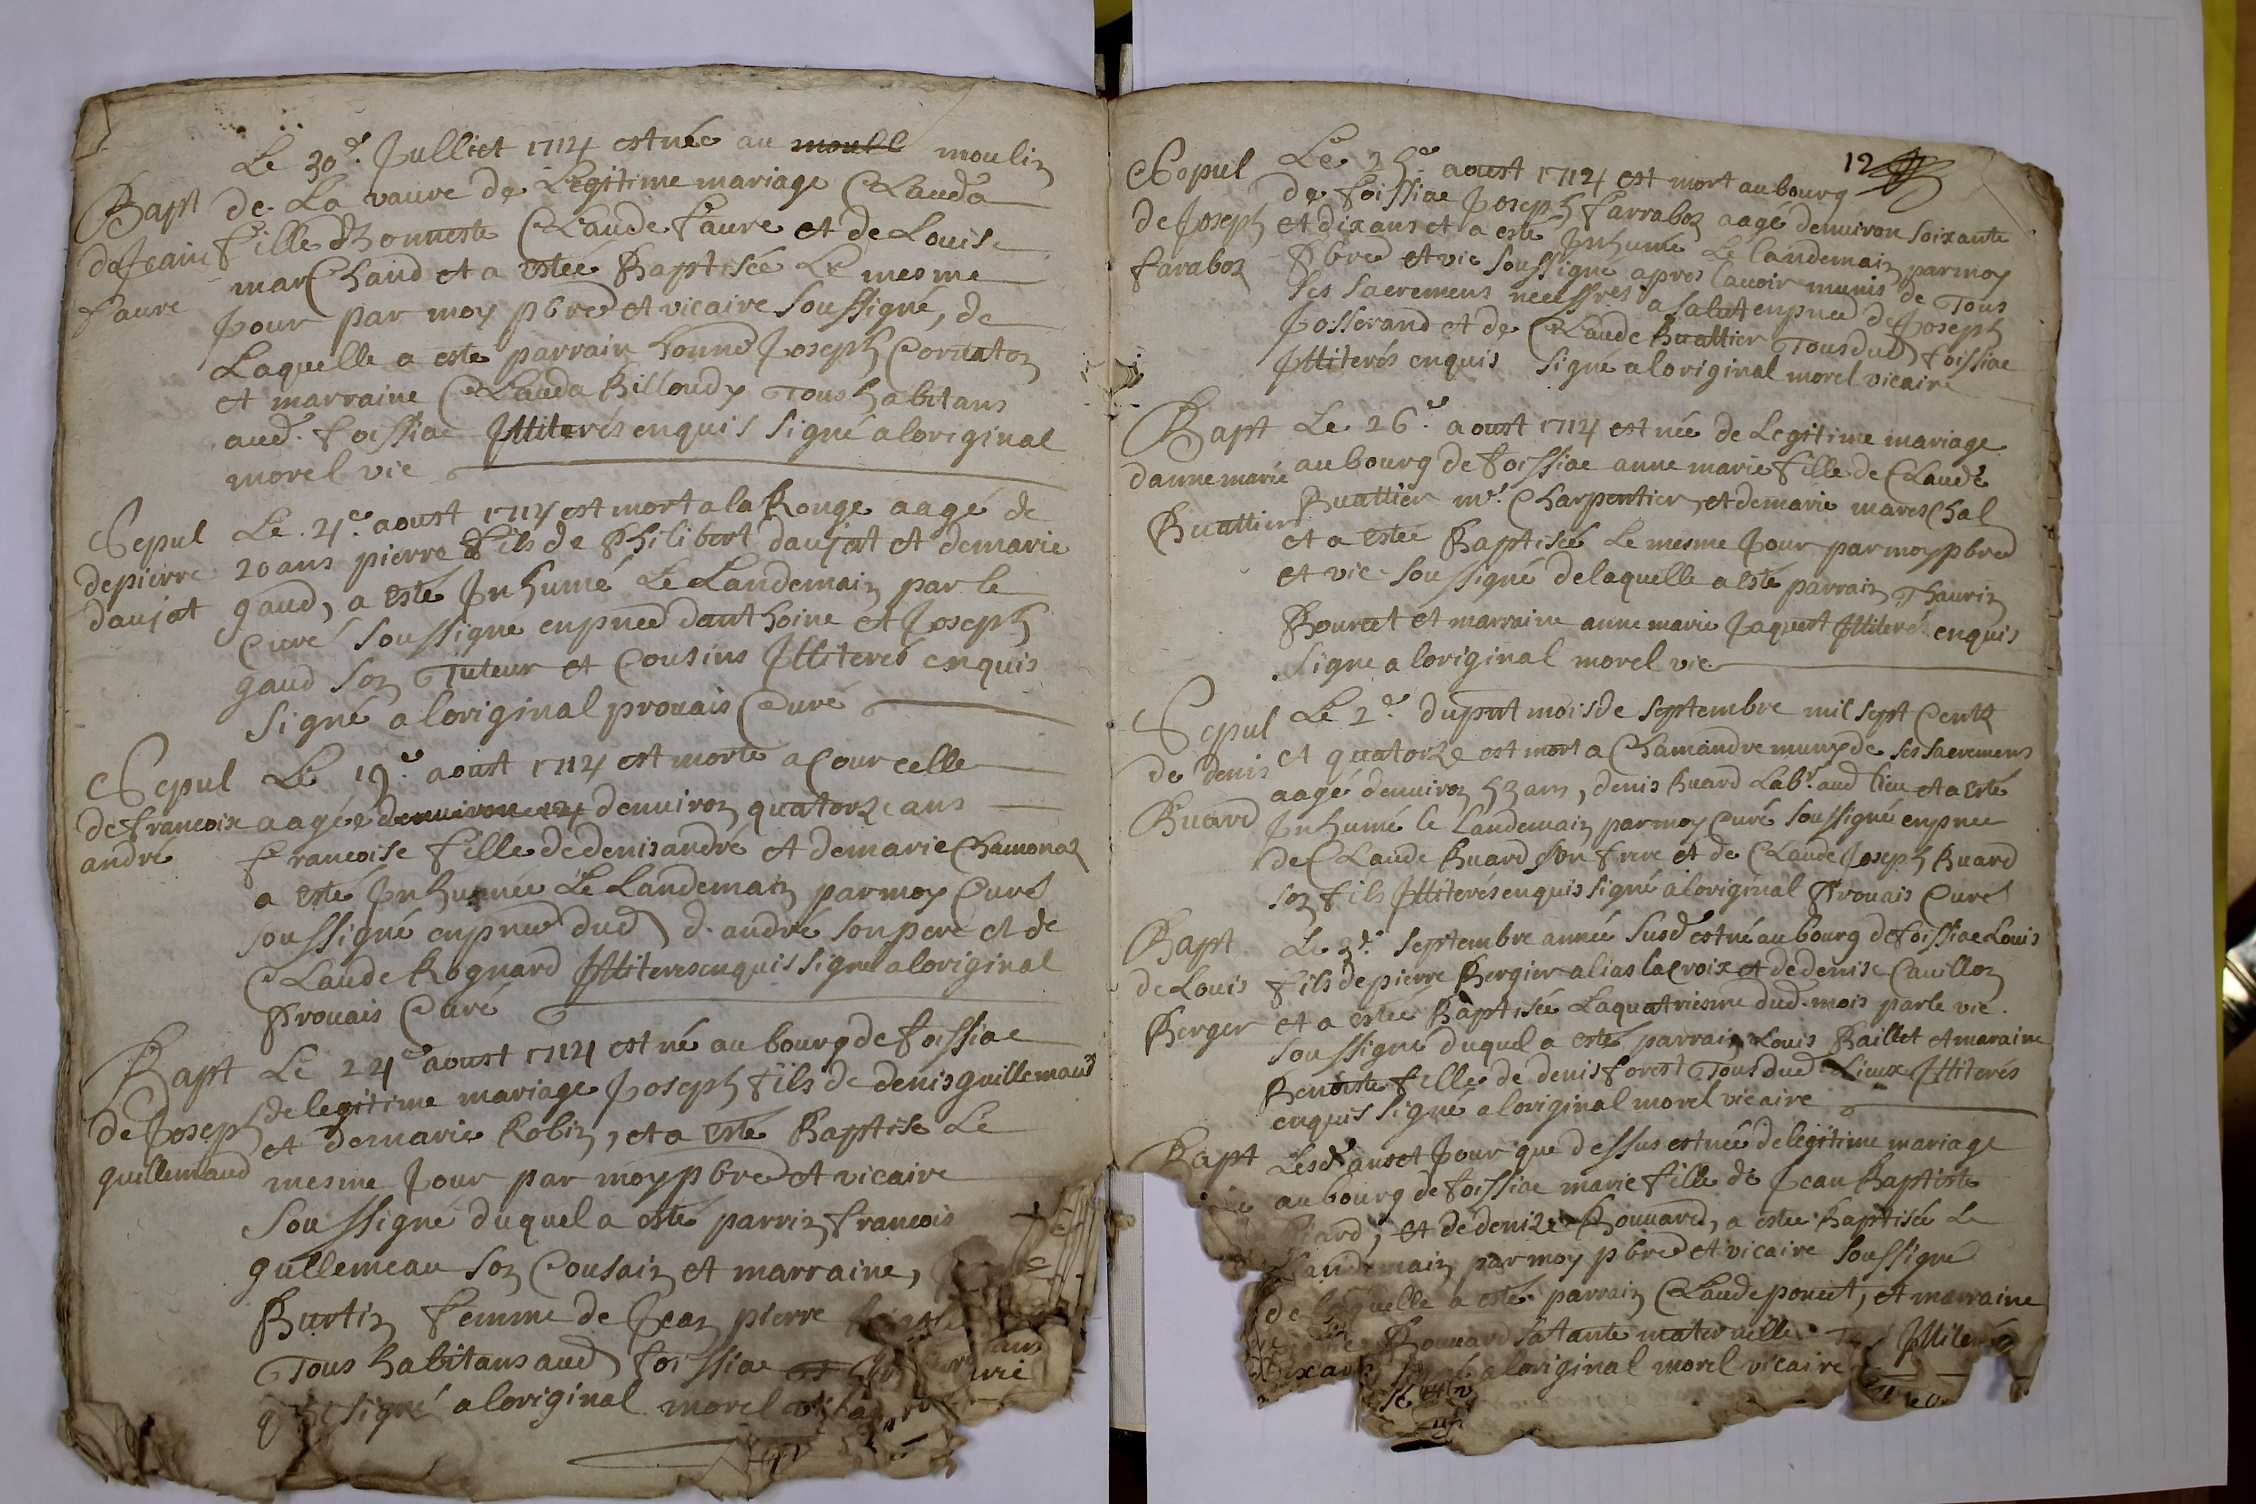 Le 30e. Julliet 1714 est née au moull moulin
Bapt de La vaure de Legitime mariage Clauda
de Jeane fille d'honneste Claude faure et de Louise
faure marChand et a estée Baptisée Le mesme
Jour par moy pbre et vicaire soussigné, de
Laquelle a este parrain honne Joseph
et marraine Clauda Billoudy Tous habitans
aud. foissiac Illiterés enquis signé a loriginal
morel vic
Sepul Le 4e. aoust 1714 est mort a la Rouge aagé de
de pierre 20 ans pierre fils de Philibert daujat et de marie
daujat gaud, a esté Inhumé Le Landemain par le
Curé soussigne enpnce danthoine et Joseph
gaud son Tuteur et Cousins Illiteres enquis
signé a loriginal prouais Curé
Sepul Le 19e. aoust 1714 est morte a Courcelle
de francoise aagée denuiron 14 denuiron quatorze ans
andré francoise fille de denis andré et de marie Chamonaz
a esté Inhumée Le Landemain par moy Curé
soussigné enpnce dud d. andré son pere et de
Claude Rognard Illiteres enquis signe a loriginal
Prouais Curé
Bapt Le 24e aoust 1714 est né au bourg de foissiac
de Joseph de legitime mariage Joseph fils de denis guillemaud
guillemaud et de marie Robin, et a esté Baptise Le
mesme Jour par moy pbre et vicaire
soussigné duquel a esté parrin francois
gullemeau son Cousain et marraine,
Burtin femme de Jean pierre
Tous habitans aud foissiac
signé a loriginal morel
12
Sepul Le 25e. aoust 1714 est mort au bourg
de Joseph de foissiac Joseph farraboz aagé denuiron soixante
faraboz et dix ans et a esté Inhumé Le landemain par moy
Pbre et vic soussigné apres lauoir munis de Tous
ses sacremens necessres a salut enpnce de Joseph
Josserand et de Claude Buattier Tous dud foissiac
Illiterés enquis signé a loriginal morel vicaire
Bapt Le 26e. aoust 1714 est née de Legitime mariage
danne marie au bourg de foissiac anne marie fille de Claude
Buattier Buattier mr. Charpentier, et de marie maresChal
et a estée Baptisée Le mesme Jour par moy pbre
et vic soussigné de laquelle a esté parrain Thaurin
Bournet et marraine anne marie Jaquest Illiteré enquis
signe a loriginal morel vic
Sepul Le 2e. du pnt mois de septembre mil sept Centz
de denis et quatorze est mort a Chamandre muny de ses sacremens
Buard aagé denuiron 53 ans, denis Buard Labr. aud lieu et a esté
Inhumé le landemain par moy Curé soussigné enpnce
de Claude Buard son frere et de Claude Joseph Buard
son fils Illiterés enquis signé a loriginal Prouais Curé
Bapt Le 3e. septembre année susd est né au bourg de foissiac Louis
de Louis fils de pierre Bergier alias laCroix et de denise Cauillon
Berger et a estée Baptisée Laquatriesme dud. mois par le vic.
soussigne duquel a esté parrain Louis Baillet et maraine
Benoiste fille de denis forest Tous dud Lieux Illiterés
enquis signé a loriginal morel vicaire
Bapt Lesd ans et Jour que dessus est née de legitime mariage
au bourg de foissiac marie fille de Jean Baptiste
et de denize Bouuard, a estée baptisée Le
landemain par moy pbre et vicaire soussigné
de laquelle a esté parrain Claude poncet, et marraine
Bouuard sa tante maternelle Illiterés
a loriginal morel vicaire